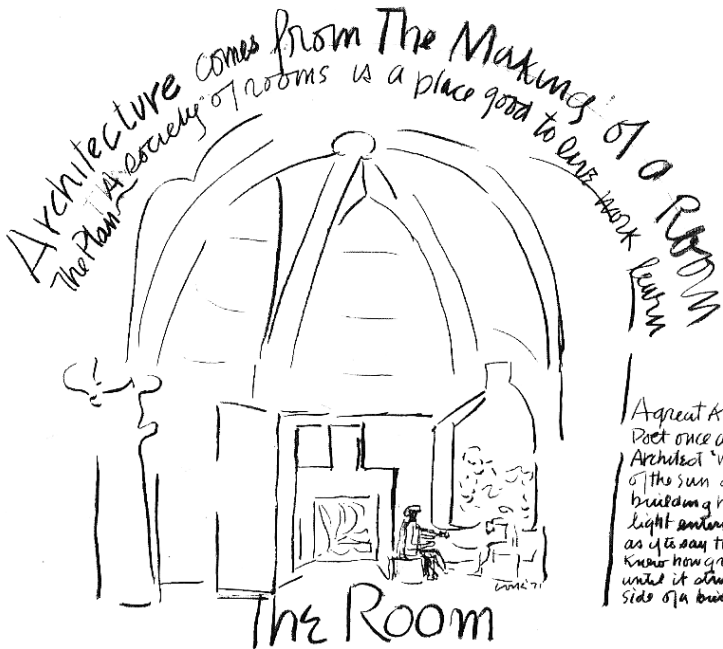 Architecture comes from The Making of a Room
The Plan A society of rooms is a place good to live work learn
A great A
Poet once a
Architect 'W
of the sun
building h
light enter
as if to say th
knew how gr
until it stru
side of a bui
Lou K '71
The Room